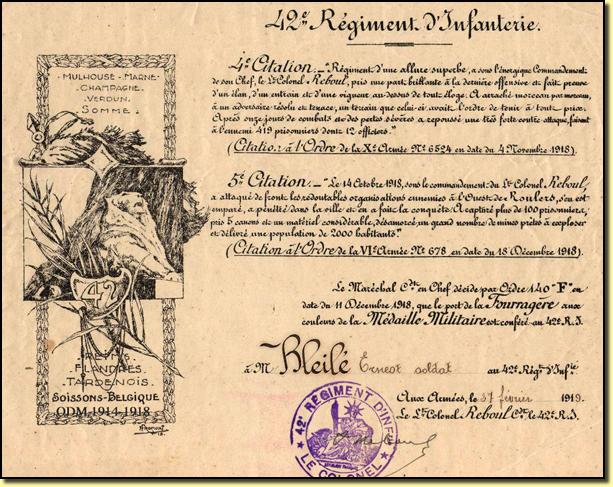 42e. Régiment d'Infanterie.
4e Citation._ "Régiment d'une allure superbe, a sous l'énergique Commandement
de son Chef, le Lt Colonel Reboul, pris une part brillante à la dernière offensive et fait preuve
d'un élan, d'un entrain et d'une vigueur au-dessus de tout éloge. A arraché morceau par morceau,
à un adversaire résolu et tenace, un terrain que celui-ci avait l'ordre de tenir à tout prix.
Après onze jours de combats et des pertes sévères a repoussé une très forte contre attaque, faisant
à l'ennemi 419 prisonniers dont 12 officiers."
(Citation à l'Ordre de la Xe Armée No 6524 en date du 4 Novembre 1918).
5e Citation._ "Le 14 Octobre 1918, sous le commandement du Lt Colonel Reboul,
a attaqué de front les redoutables organisations ennemies à l'Ouest de Roulers, s'en est
emparé, a pénétré dans la ville et en a fait la conquête. A capturé plus de 100 prisonniers,
pris 5 canons et un matériel considérable, désamorcé un grand nombre de mines prêtes à exploser
et délivré une population de 2000 habitants."
(Citation à l'Ordre de la VIe Armée No 678 en date du 18 Décembre 1918).
Le Maréchal Cdt en Chef décide par Ordre 140 "F" en
date du 11 Décembre 1918, que le port de la Fourragère aux
couleurs de la Médaille Militaire est conféré au 42e R.I.
à M Bleilé Ernest soldat au 42e Régt d'Infie
Aux Armées, le février 1919.
Le Lt Colonel Reboul Cdt le 42e R.I.
MULHOUSE - MARNE
CHAMPAGNE
VERDUN
SOMME
42
REIMS
FLANDRES
TARDENOIS
SOISSONS-BELGIQUE
ODM 1914-1918
42e REGIMENT D'INF
LE COLONEL